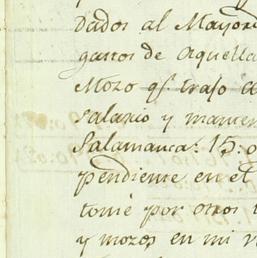 dados al Mayord
gastos de aquella
Mozo q.e trajo a
salario y manten
Salamanca: 15: o
pendiente en el
tomè por otros
y mozos en mi v